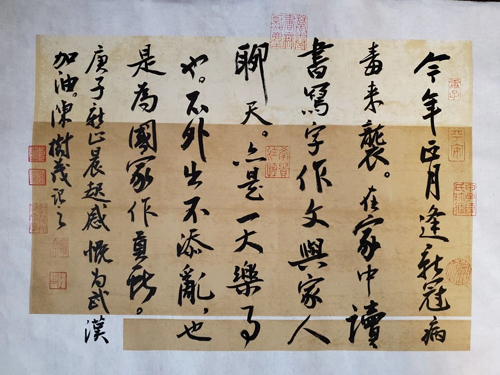 今年正月逢新冠病
毒来襲。在家中讀
書寫字作文與家人
聊天。亦是一大樂事
也。不外出不添亂，也
是為國家作貢献。
庚子新正晨起感慨為武漢
加油。陳樹茂記之